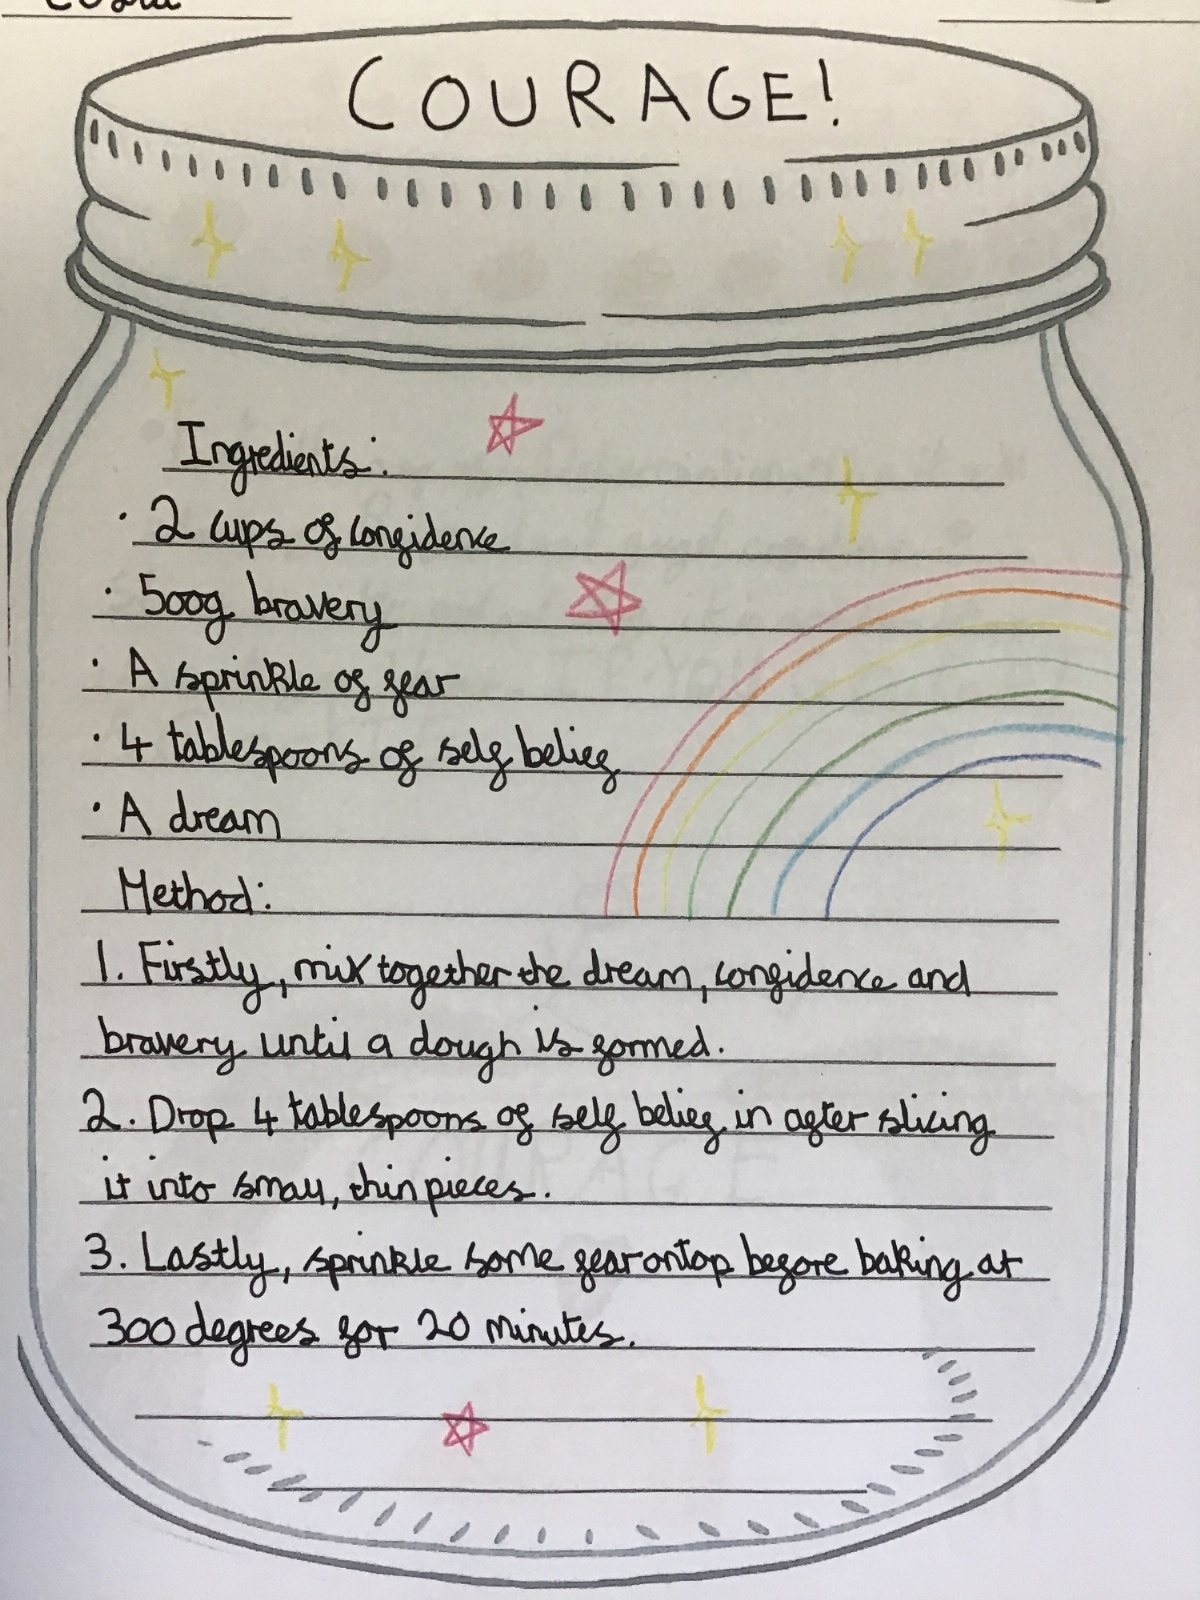 COURAGE!
Ingredients:
· 2 cups of confidence
· 500g bravery
· A sprinkle of fear
· 4 tablespoons of self belief
· A dream
Method:
1. Firstly, mix together the dream, confidence and
bravery until a dough is formed.
2. Drop 4 tablespoons of self belief in after slicing
it into small, thin pieces.
3. Lastly, sprinkle some fear ontop before baking at
300 degrees for 20 minutes.